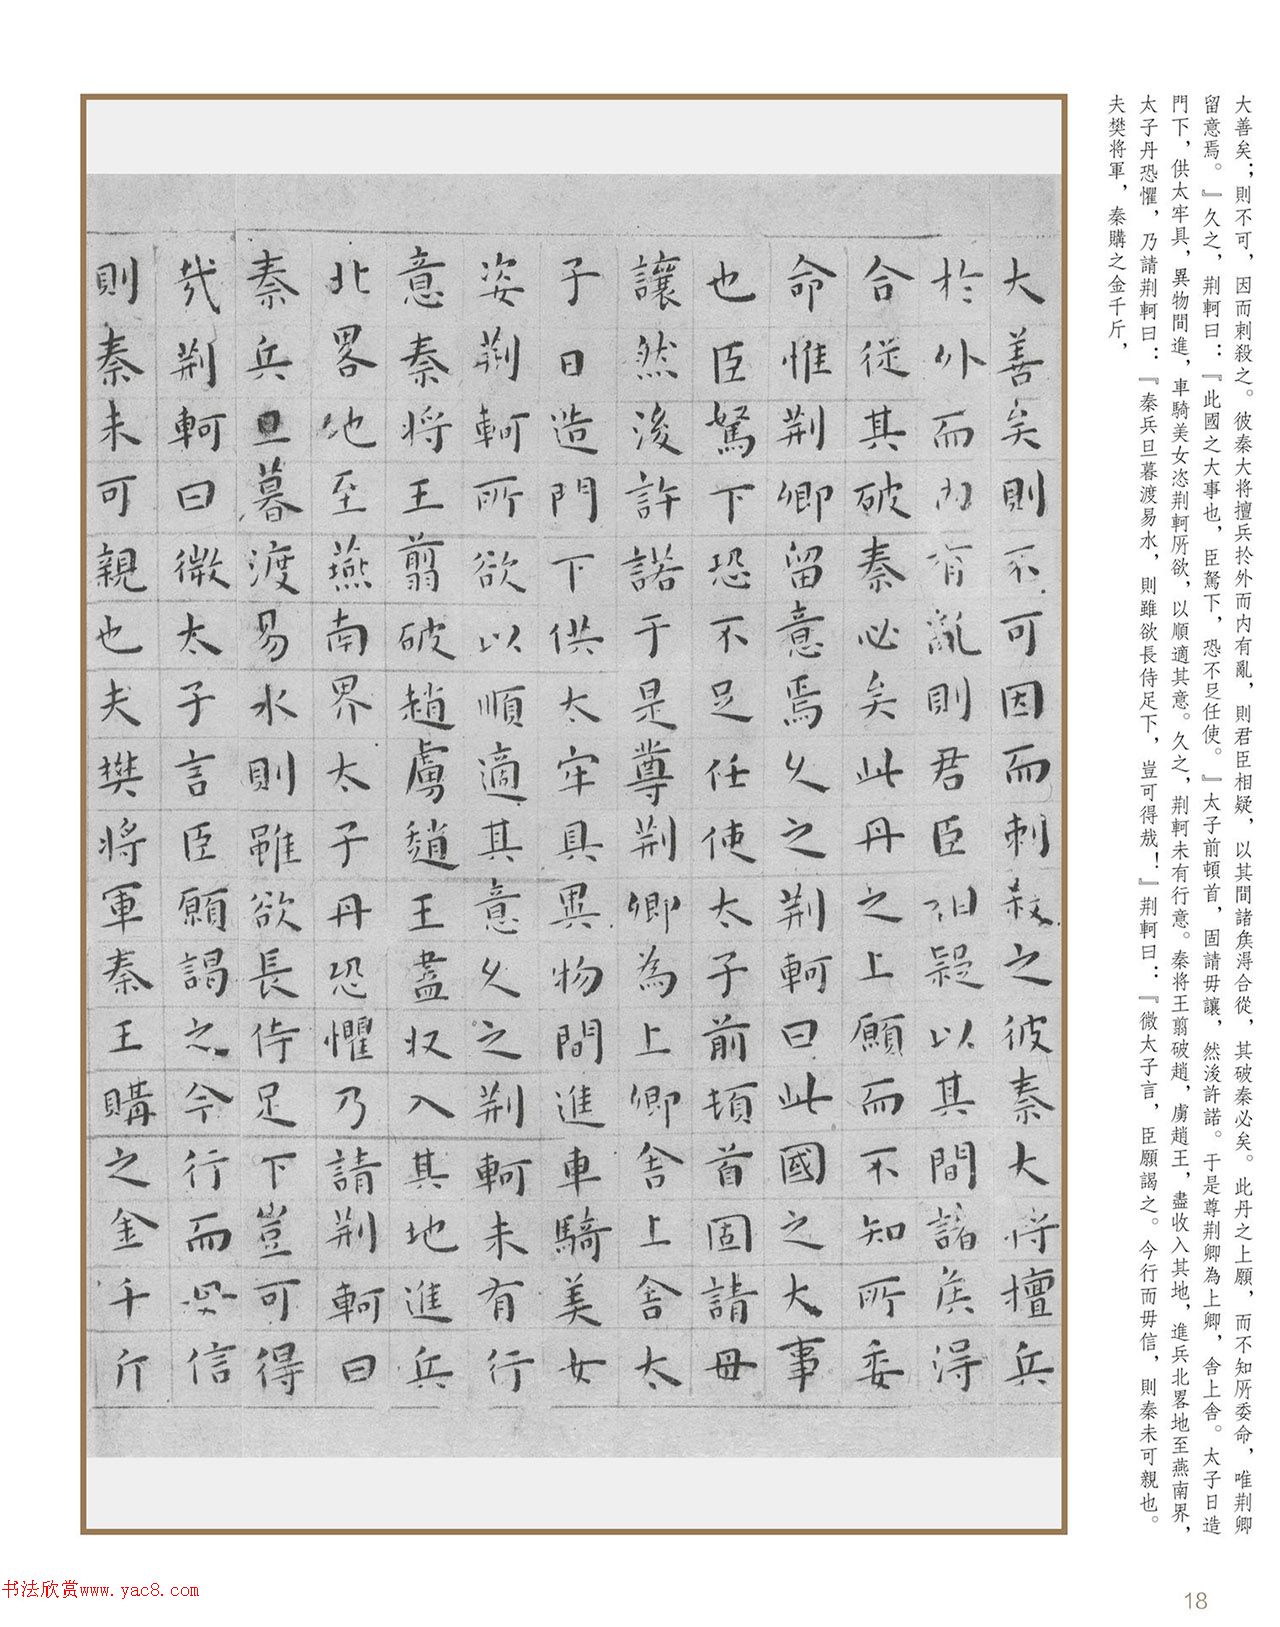 大善矣；則不可，因而刺殺之。彼秦大將擅兵於外而内有亂，則君臣相疑，以其間諸矦淂合從，其破秦必矣。此丹之上願，而不知所委命，唯荆卿
留意焉。』久之，荆軻曰：『此國之大事也，臣駑下，恐不足任使。』太子前頓首，固請毋讓，然浚許諾。于是尊荆卿為上卿，舍上舍。太子日造
門下，供太牢具，異物間進，車騎美女恣荆軻所欲，以順適其意。久之，荆軻未有行意。秦将王翦破趙，虜趙王，盡收入其地，進兵北畧地至燕南界，
太子丹恐懼，乃請荆軻曰：『秦兵旦暮渡易水，則雖欲長侍足下，豈可得哉！』荆軻曰：『微太子言，臣願謁之。今行而毋信，則秦未可親也。
夫樊将軍，秦購之金千斤，
大善矣則不可因而刺殺之彼秦大将擅兵
於外而内有亂則君臣相疑以其間諸矦淂
合從其破秦必矣此丹之上願而不知所委
命惟荆卿留意焉久之荆軻曰此國之大事
也臣駑下恐不足任使太子前頓首固請毋
讓然浚許諾于是尊荆卿為上卿舍上舍太
子日造門下供太牢具異物間進車騎美女
姿荆軻所欲以順適其意久之荆軻未有行
意秦将王翦破趙虜趙王盡収入其地進兵
北畧地至燕南界太子丹恐懼乃請荆軻曰
秦兵旦暮渡易水則雖欲長侍足下豈可得
哉荆軻曰微太子言臣願謁之今行而毋信
則秦未可親也夫樊将軍秦王購之金千斤
书法欣赏www.yac8.com
18